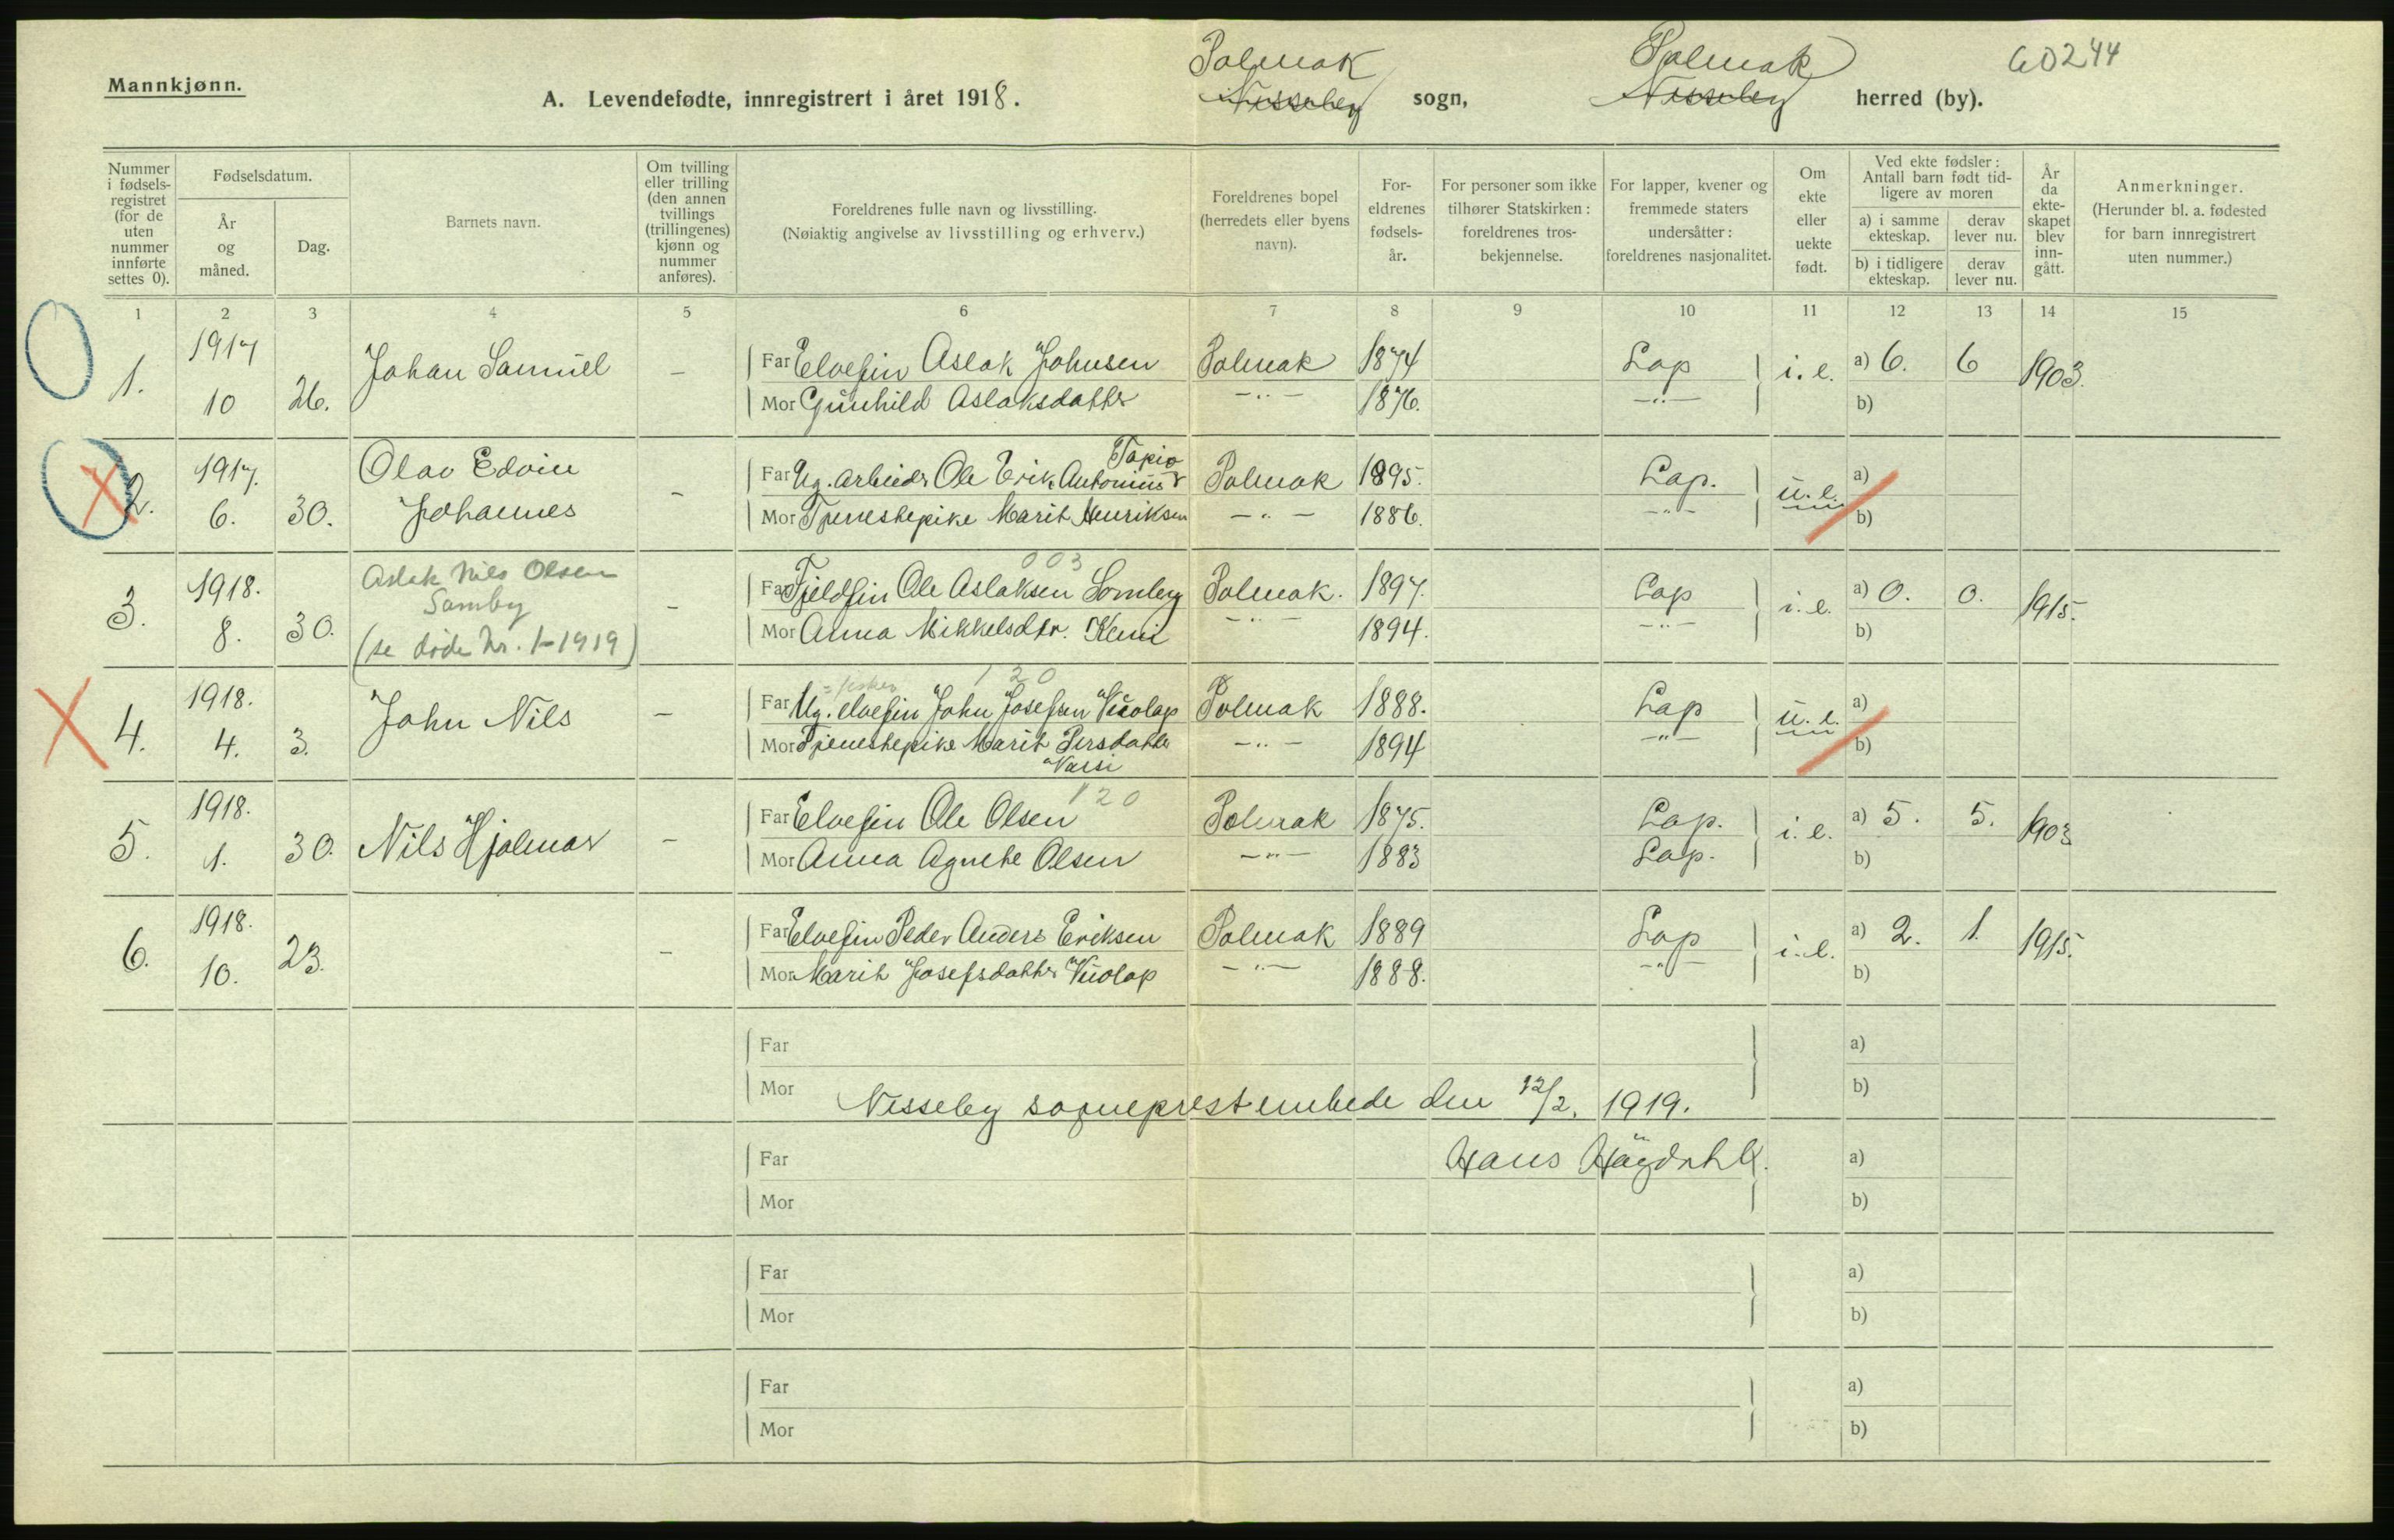 Mannkjønn.
A. Levendefødte, innregistrert i året 1918.
Polmak Nesseby sogn, Polmak Nesseby herred (by).
60244
Nummer i fødsels-registret (for de uten nummer innførte settes 0).
Fødselsdatum.
År og måned.
Dag.
Barnets navn.
Om tvilling eller trilling (den annen tvillings (trillingenes) kjønn og nummer anføres).
Foreldrenes fulle navn og livsstilling.
(Nøiaktig angivelse av livsstilling og erhverv.)
Foreldrenes bopel (herredets eller byens navn).
For-eldrenes fødsels-år.
For personer som ikke tilhører Statskirken: foreldrenes tros-bekjennelse.
For lapper, kvener og fremmede staters undersåtter: foreldrenes nasjonalitet.
Om ekte eller uekte født.
Ved ekte fødsler: Antall barn født tid-ligere av moren
a) i samme ekteskap.
derav lever nu.
b) i tidligere ekteskap.
derav lever nu.
År da ekte-skapet blev inn-gått.
Anmerkninger.
(Herunder bl. a. fødested for barn innregistrert uten nummer.)
1 2 3 4 5 6 7 8 9 10 11 12 13 14 15
1. 1917 10 26. Johan Samuel –
Far Elvefin Aslak Johnsen Polmak 1874 Lap i.e. a) 6. 6 1903.
Mor Gunhild Aslaksdatter –"– 1876. –"– b)
2. 1917. 6. 30. Olav Edvin Johannes –
Tapio
Far Ug. arbeider Ole Erik Antonius Polmak 1895. Lap. u.e. a)
Mor Tjenestepike Marit Henriksen –"– 1886. –"– b)
3. 1918. 8. 30. Aslak Nils Olsen Somby
(se døde nr. 1-1919) –
003
Far Fjeldfin Ole Aslaksen Somby Polmak. 1897. Lap i.e. a) 0. 0. 1915.
Mor Anna Mikkelsdtr. Kemi –"– 1894. –"– b)
4. 1918. 4. 3. John Nils –
= fisker 120
Far Ug. elvefin John Josefsen Vuolap Polmak 1888. Lap u.e. a)
Mor Tjenestepike Marit Persdatter Varsi –"– 1894 –"– b)
5. 1918. 1. 30. Nils Hjalmar –
120
Far Elvefin Ole Olsen Polmak 1875. Lap. i.e. a) 5. 5. 1903
Mor Anna Agnethe Olsen –"– 1883 Lap. b)
6. 1918. 10. 23. –
Far Elvefin Peder Anders Eriksen Polmak 1889 Lap i.e. a) 2. 1. 1915.
Mor Marit Josefsdatter Vuolap –"– 1888. –"– b)
Far a)
Mor b)
Nesseby sogneprestembede den 12/2. 1919.
Far Hans a)
Mor b)
Far a)
Mor b)
Far a)
Mor b)